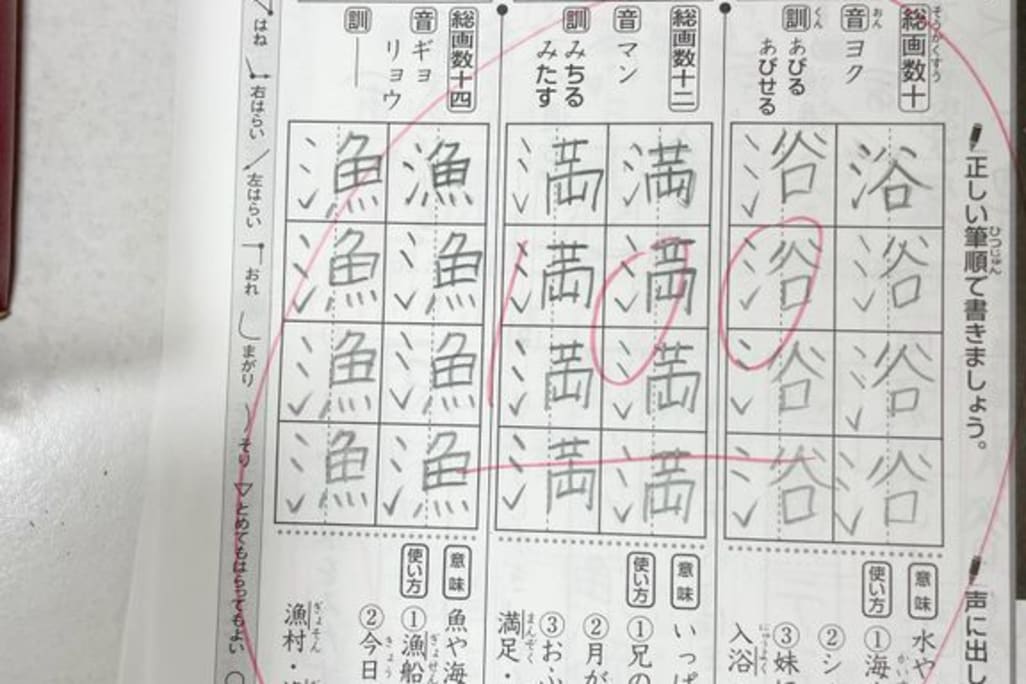 正しい筆順で書きましょう。
ひつじゅん
声に出し
総画数十
そうかくすう
音 ヨク
おん
訓 あびる
くん
あびせる
浴 浴 浴 浴
浴 浴 浴 浴
意味 水や
使い方 ①海
かい
②シ
③妹
入浴
にゅうよく
総画数十二
音 マン
訓 みちる
みたす
満 満 満 満
満 満 満 満
意味 いっぱ
使い方 ①兄の
②月が
③おふ
満足・
まんぞく
総画数十四
音 ギョ
リョウ
訓 ―
漁 漁 漁 漁
漁 漁 漁 漁
意味 魚や海
使い方 ①漁船
ぎょせん
②今日
きょう
漁村・
ぎょそん
はね
右はらい
左はらい
おれ
まがり
そり
とめてもはらってもよい